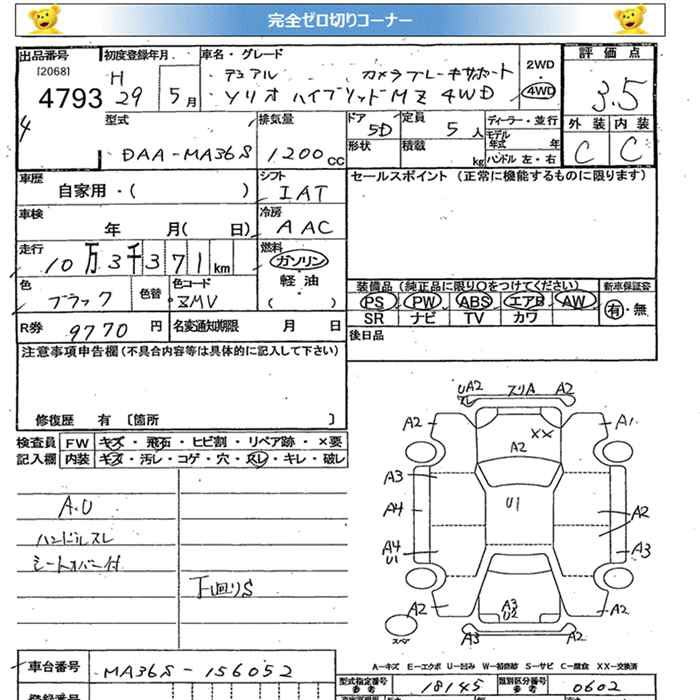 完全ゼロ切りコーナー
出品番号
[2068]
4793
4
初度登録年月
H
29年 5月
車名・グレード
デュアル カメラブレーキサポート
ソリオハイブリッドMZ 4WD
2WD
・
4WD
評価点
3.5
外装 内装
C C
型式
DAA-MA36S
排気量
1200cc
ドア
5D
形状
定員
5人
積載
kg
ディーラー・並行
モデル
年式 年
ハンドル 左・右
車歴
自家用・( )
シフト
IAT
セールスポイント (正常に機能するものに限ります)
車検
年 月( 日)
冷房
AAC
走行
10万3千371km
燃料
ガソリン
軽油
( )
色
ブラック
色替
色コード
ZMV
装備品 (純正品に限り○をつけてください)
PS PW ABS エアB AW
SR ナビ TV カワ
新車保証書
有・無
R券 9770円
名変通知期限 月 日
後日品
注意事項申告欄(不具合内容等は具体的に記入して下さい)
修復歴 有 〔箇所 〕
検査員 FW キズ・飛石・ヒビ割・リペア跡・×要
記入欄 内装 キズ・汚レ・コゲ・穴・スレ・キレ・破レ
A.U
ハンドルスレ
シートカバー付
下回りS
UA2 スレ スリA A2
A2 A1
XX
A2
A3
A4 U1 A2
A4
U1 A3
A3
U2
A2 A2
スペア
A3 A2
A-キズ E-エクボ U-凹み W-補修跡 S-サビ C-腐食 XX-交換済
車台番号 MA36S-156052
型式指定番号
参考 18145
類別区分番号
参考 0602
登録番号